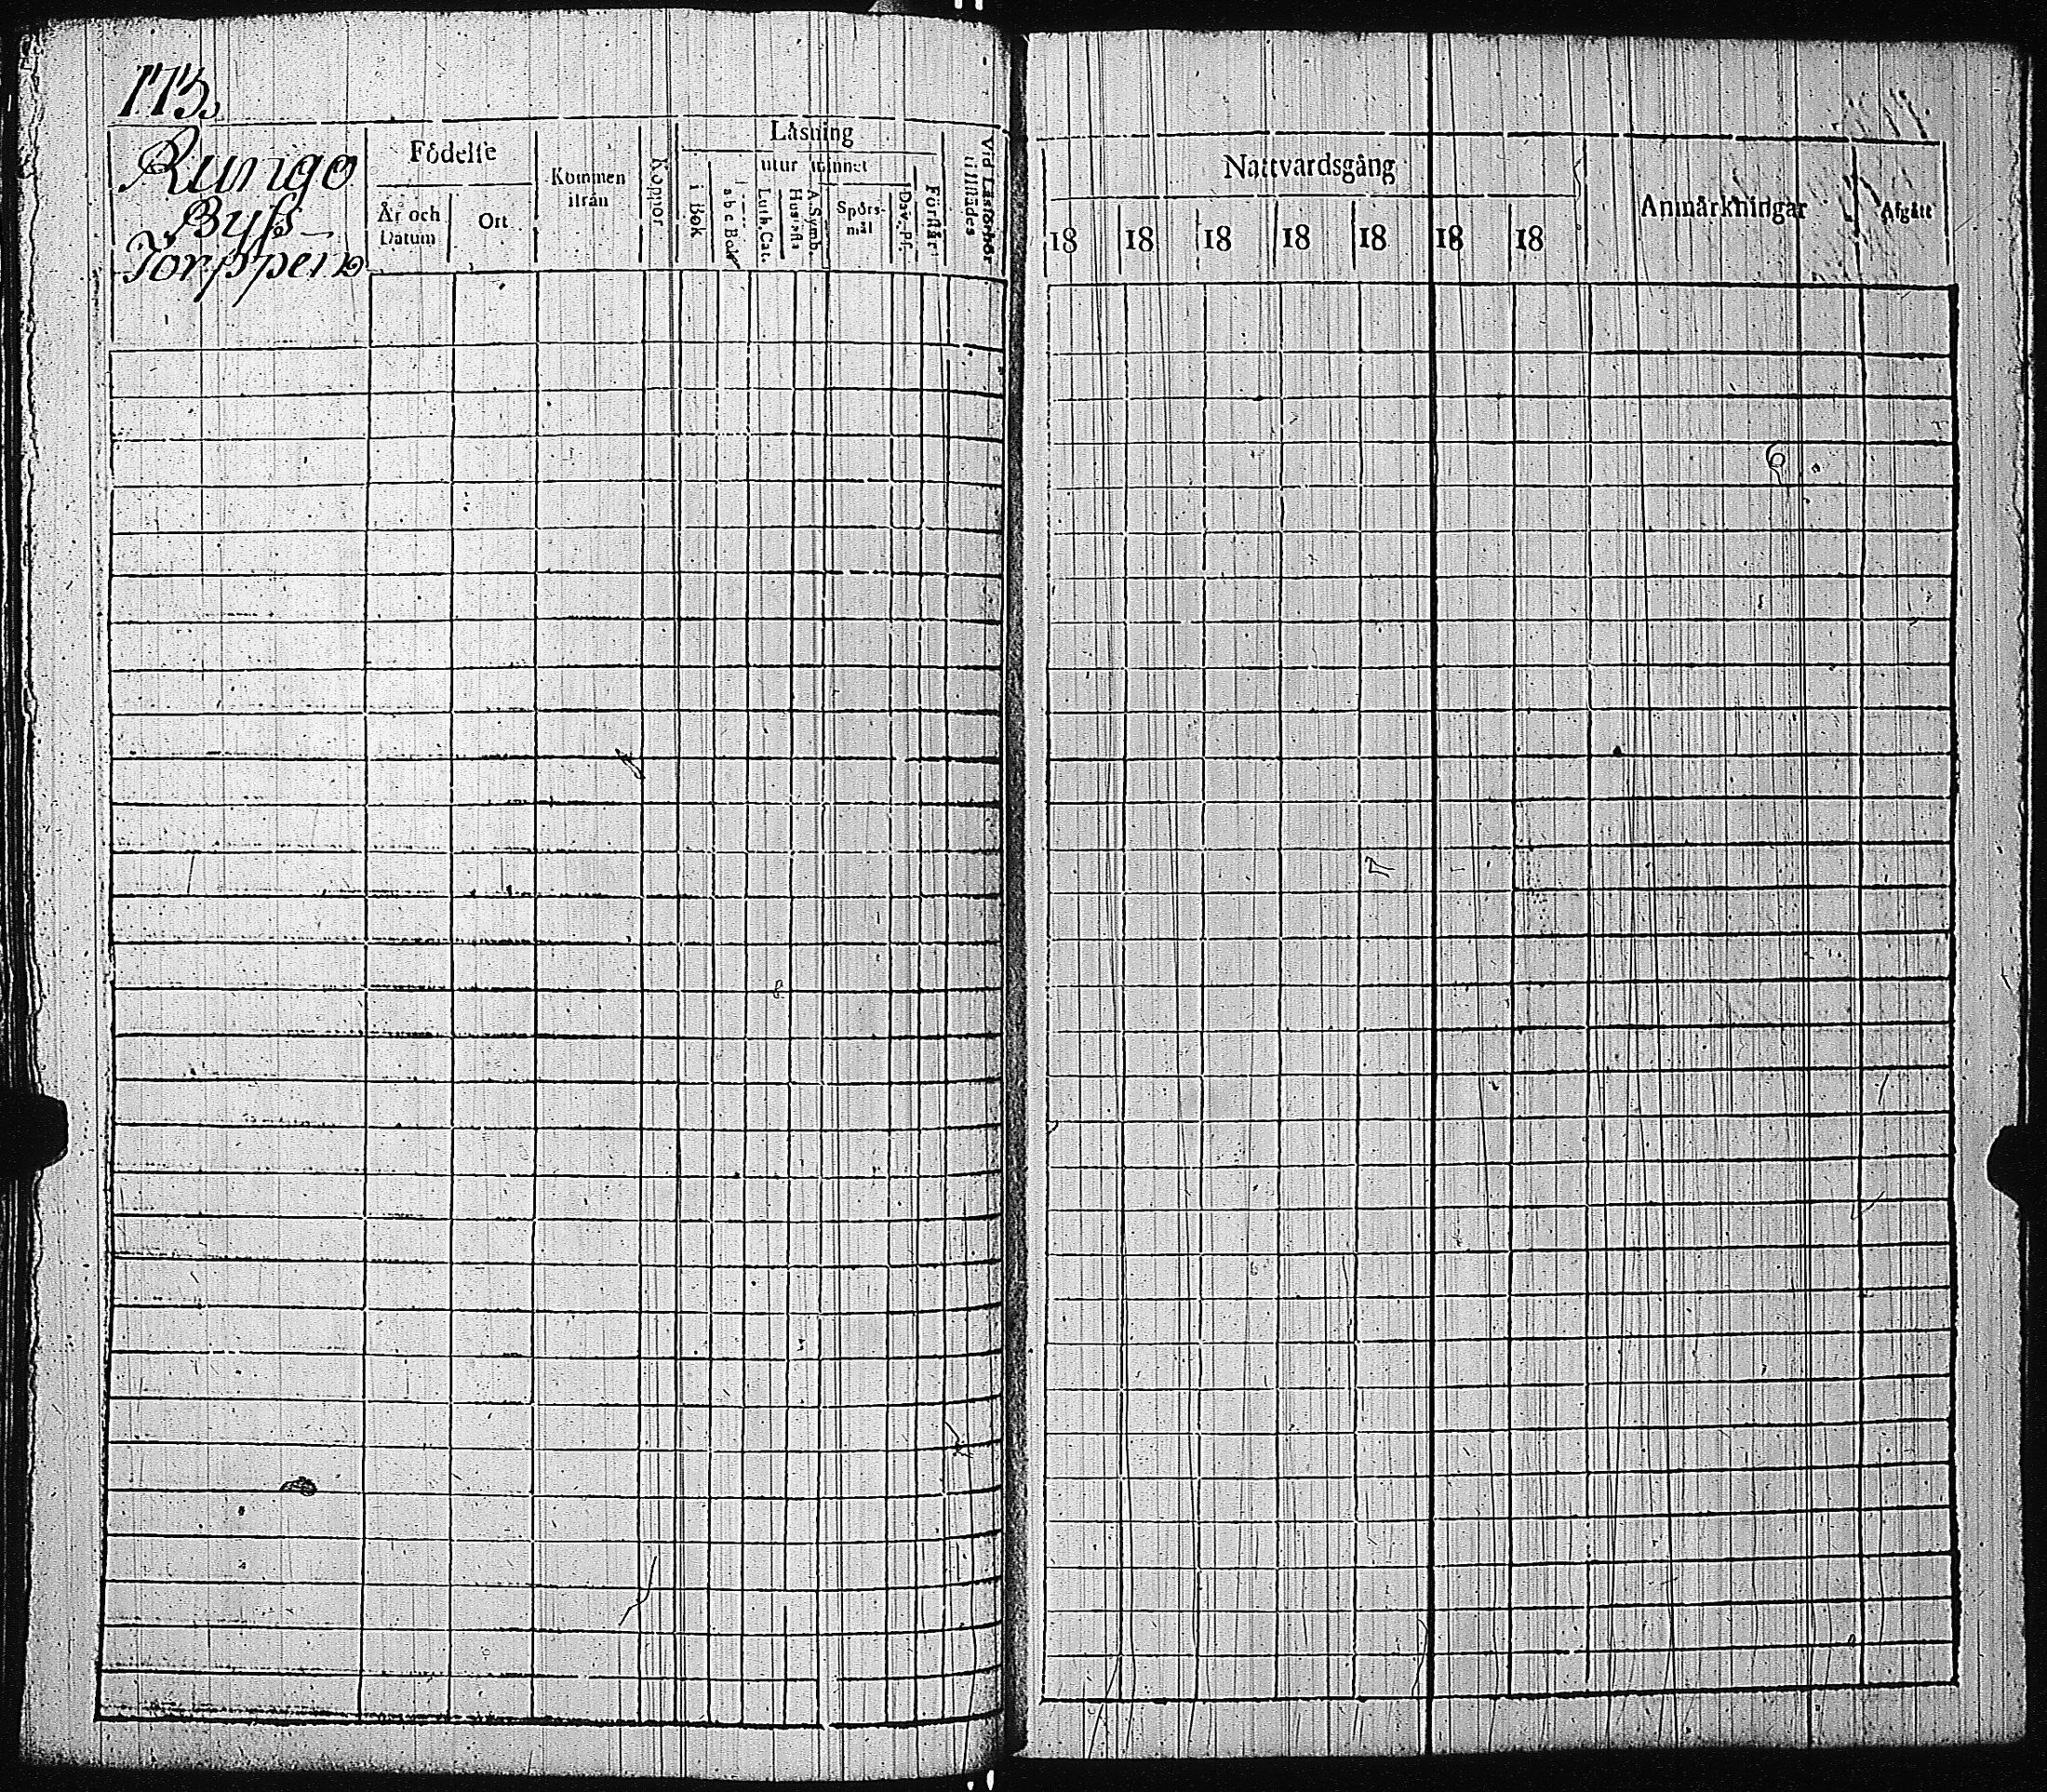 173.
Rungo
Byss
Torpper
Födelse
År och Datum
Ort
Kommen ifrån
Koppor
Läsning
i Bok
utur minnet
a b c Bok
Luth. Cat.
Hustafla
A. Symb.
Spörs-
mål
Dav. Ps.
Förstår
Vid Läsförhör
tillstädes
Nattvardsgång
18 18 18 18 18 18 18
Anmärkningar
Afgått